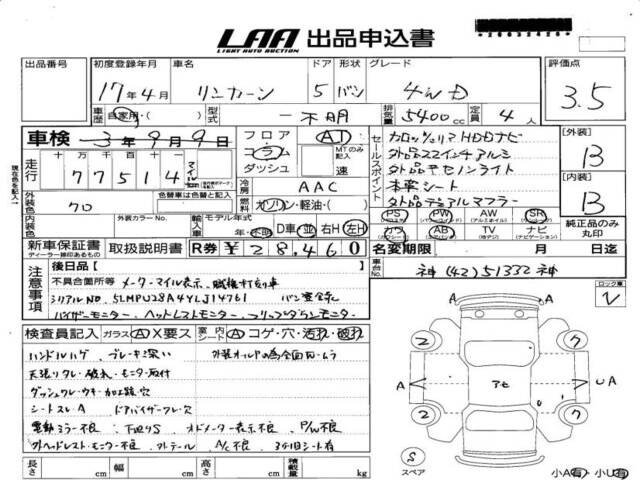 LAA 出品申込書
LIGHT AUTO AUCTION
出品番号 初度登録年月 車名 ドア 形状 グレード 評価点
17年4月 リンカーン 5 バン 4WD 3.5
車歴 自家用・( ) 型式 不明 排気量 5400cc 定員 4人
車検 3年9月9日 フロア AT
コラム MTのみ記入
ダッシュ 速
走行 十万 万 千 百 十 一 マイル
77514
冷房 AAC
外装色 クロ 色替車は色替と記入 燃料 ガソリン・軽油・( )
内装色 外装カラーNo. 輸入車 モデル年式 年・不明 D車 並 右H 左H
セールスポイント
カロッツェリアHDDナビ
外品22インチアルミ
外品キセノンライト
本革シート
外品デジタルマフラー
PS PW AW SR
カワ AB TV ナビ
[外装] B
[内装] B
純正品のみ丸印
新車保証書 取扱説明書 R券 ¥28,460
ディーラー捺印あるもの
名変期限 月 日迄
車台No. 神(42)51332神
現在色を記入
注意事項
後日品 [ ]
不具合箇所等 メーターマイル表示、職権打刻車
シリアルNO. 5LMPU28A44YLJ14761
バイザーモニター、ヘッドレストモニター、フリップダウンモニター
ロック車 レ
検査員記入 ガラス A X要ス 室内 シート A コゲ・穴・汚れ・破れ
ハンドルハゲ ブレーキ深い
天張りタレ・破れ・モニター取付
ダッシュクレ・ウキ・加工跡穴
シートスレA ドアバイザークレ欠
電動ミラー不良 下回りS オドメーター表示不良 P/W不良
外ヘッドレストモニター不良 外テール A/C不良 3列目シート有
長さ cm 幅 cm 高さ cm 積載量 kg
2 7
A アヒ UA
2 7
S
スペア
小A有・小U有